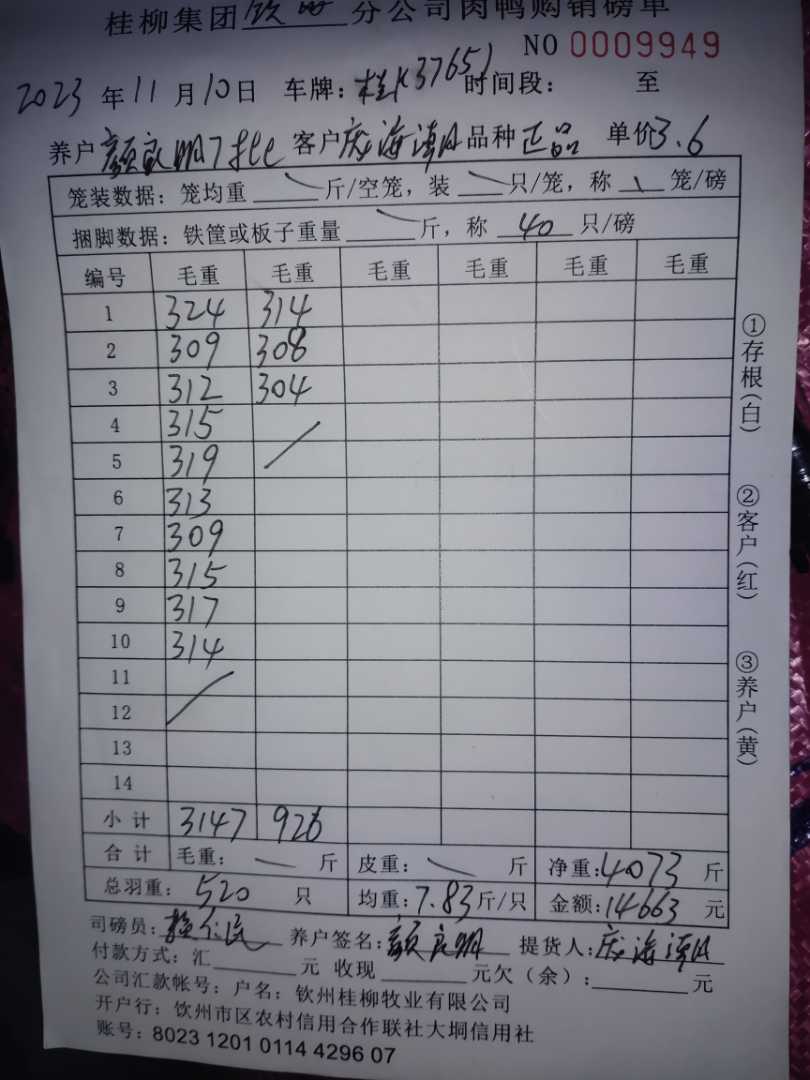 桂柳集团钦海分公司肉鸭购销磅单
NO 0009949
2023年11月10日 车牌:桂K37651 时间段: 至
养户颜良明7批 客户庞海 品种正品 单价3.6
笼装数据:笼均重 斤/空笼,装 只/笼,称 笼/磅
捆脚数据:铁筐或板子重量 斤,称 40 只/磅
编号 毛重 毛重 毛重 毛重 毛重 毛重
1 324 314
2 309 308
3 312 304
4 315
5 319
6 313
7 309
8 315
9 317
10 314
11
12
13
14
小计 3147 926
合计 毛重: 斤 皮重: 斤 净重:4073 斤
总羽重: 520 只 均重:7.83斤/只 金额:14663 元
司磅员: 养户签名:颜良明 提货人:庞海
付款方式:汇 元 收现 元欠(余): 元
公司汇款帐号:户名:钦州桂柳牧业有限公司
开户行:钦州市区农村信用合作联社大垌信用社
账号:8023 1201 0114 4296 07
①存根(白)
②客户(红)
③养户(黄)